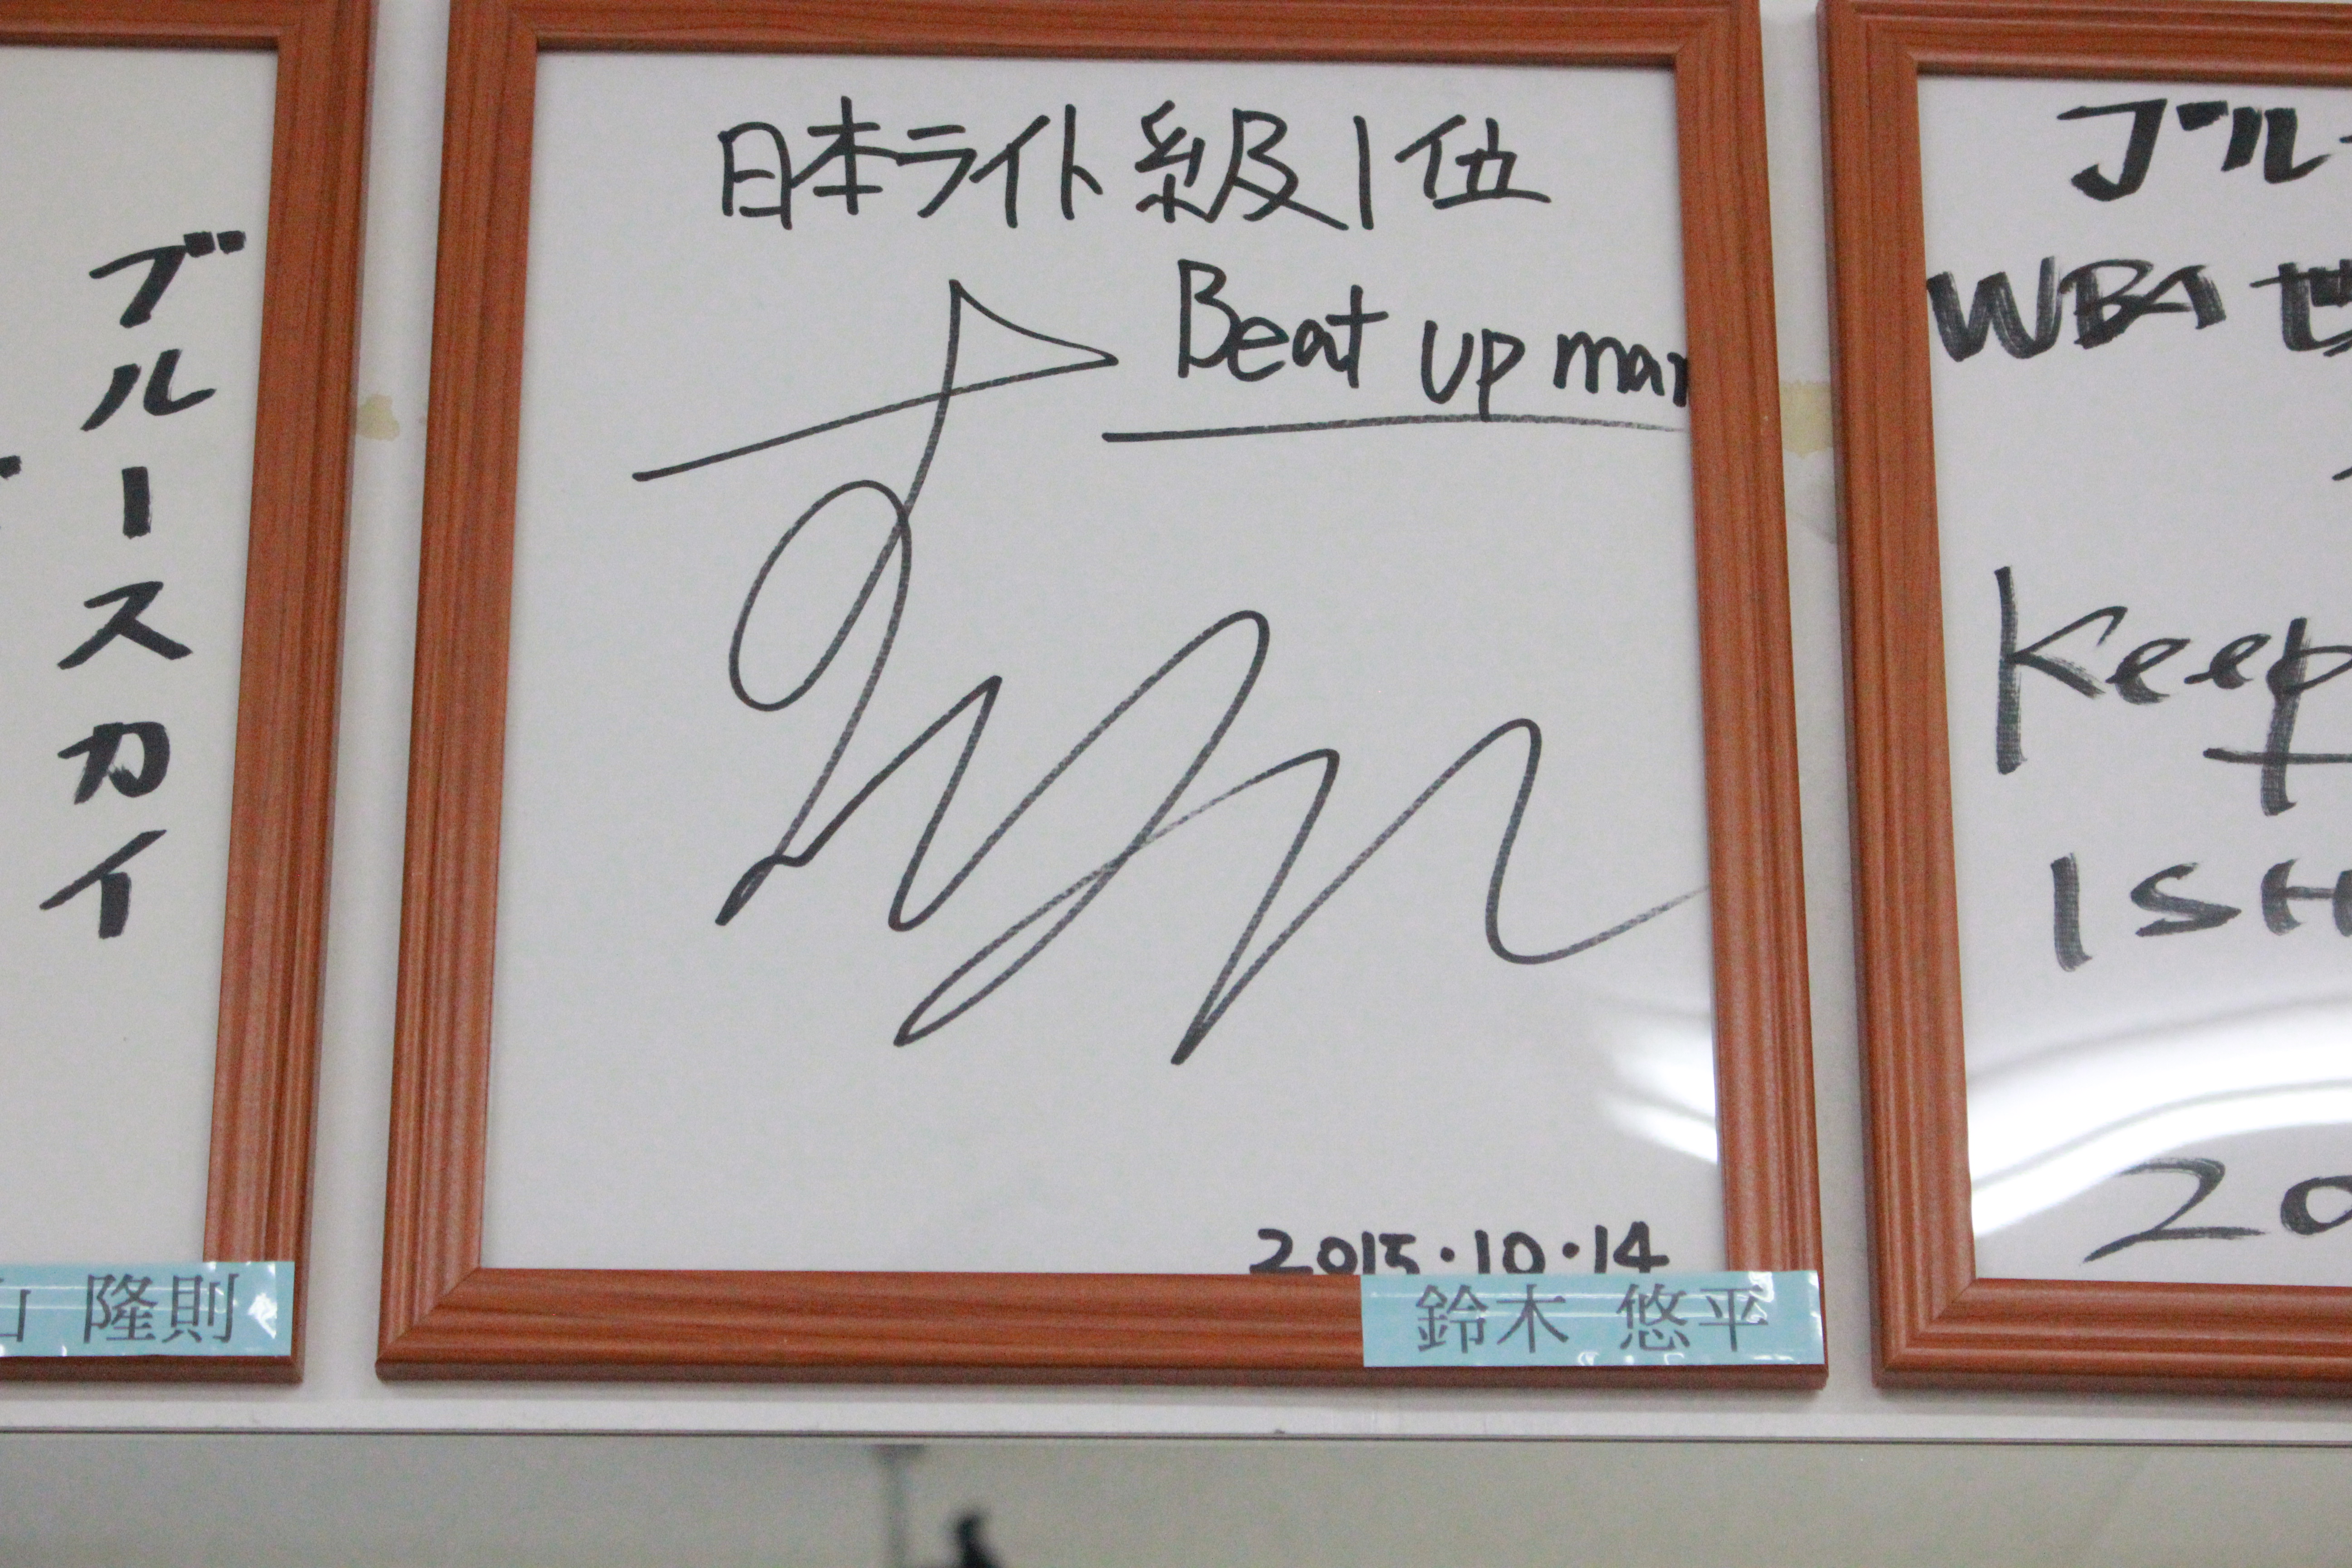 ブルースカイ
隆則
日本ライト級1位
Beat up man
2015.10.14
鈴木 悠平
WBA 世
Keep
ISH
20